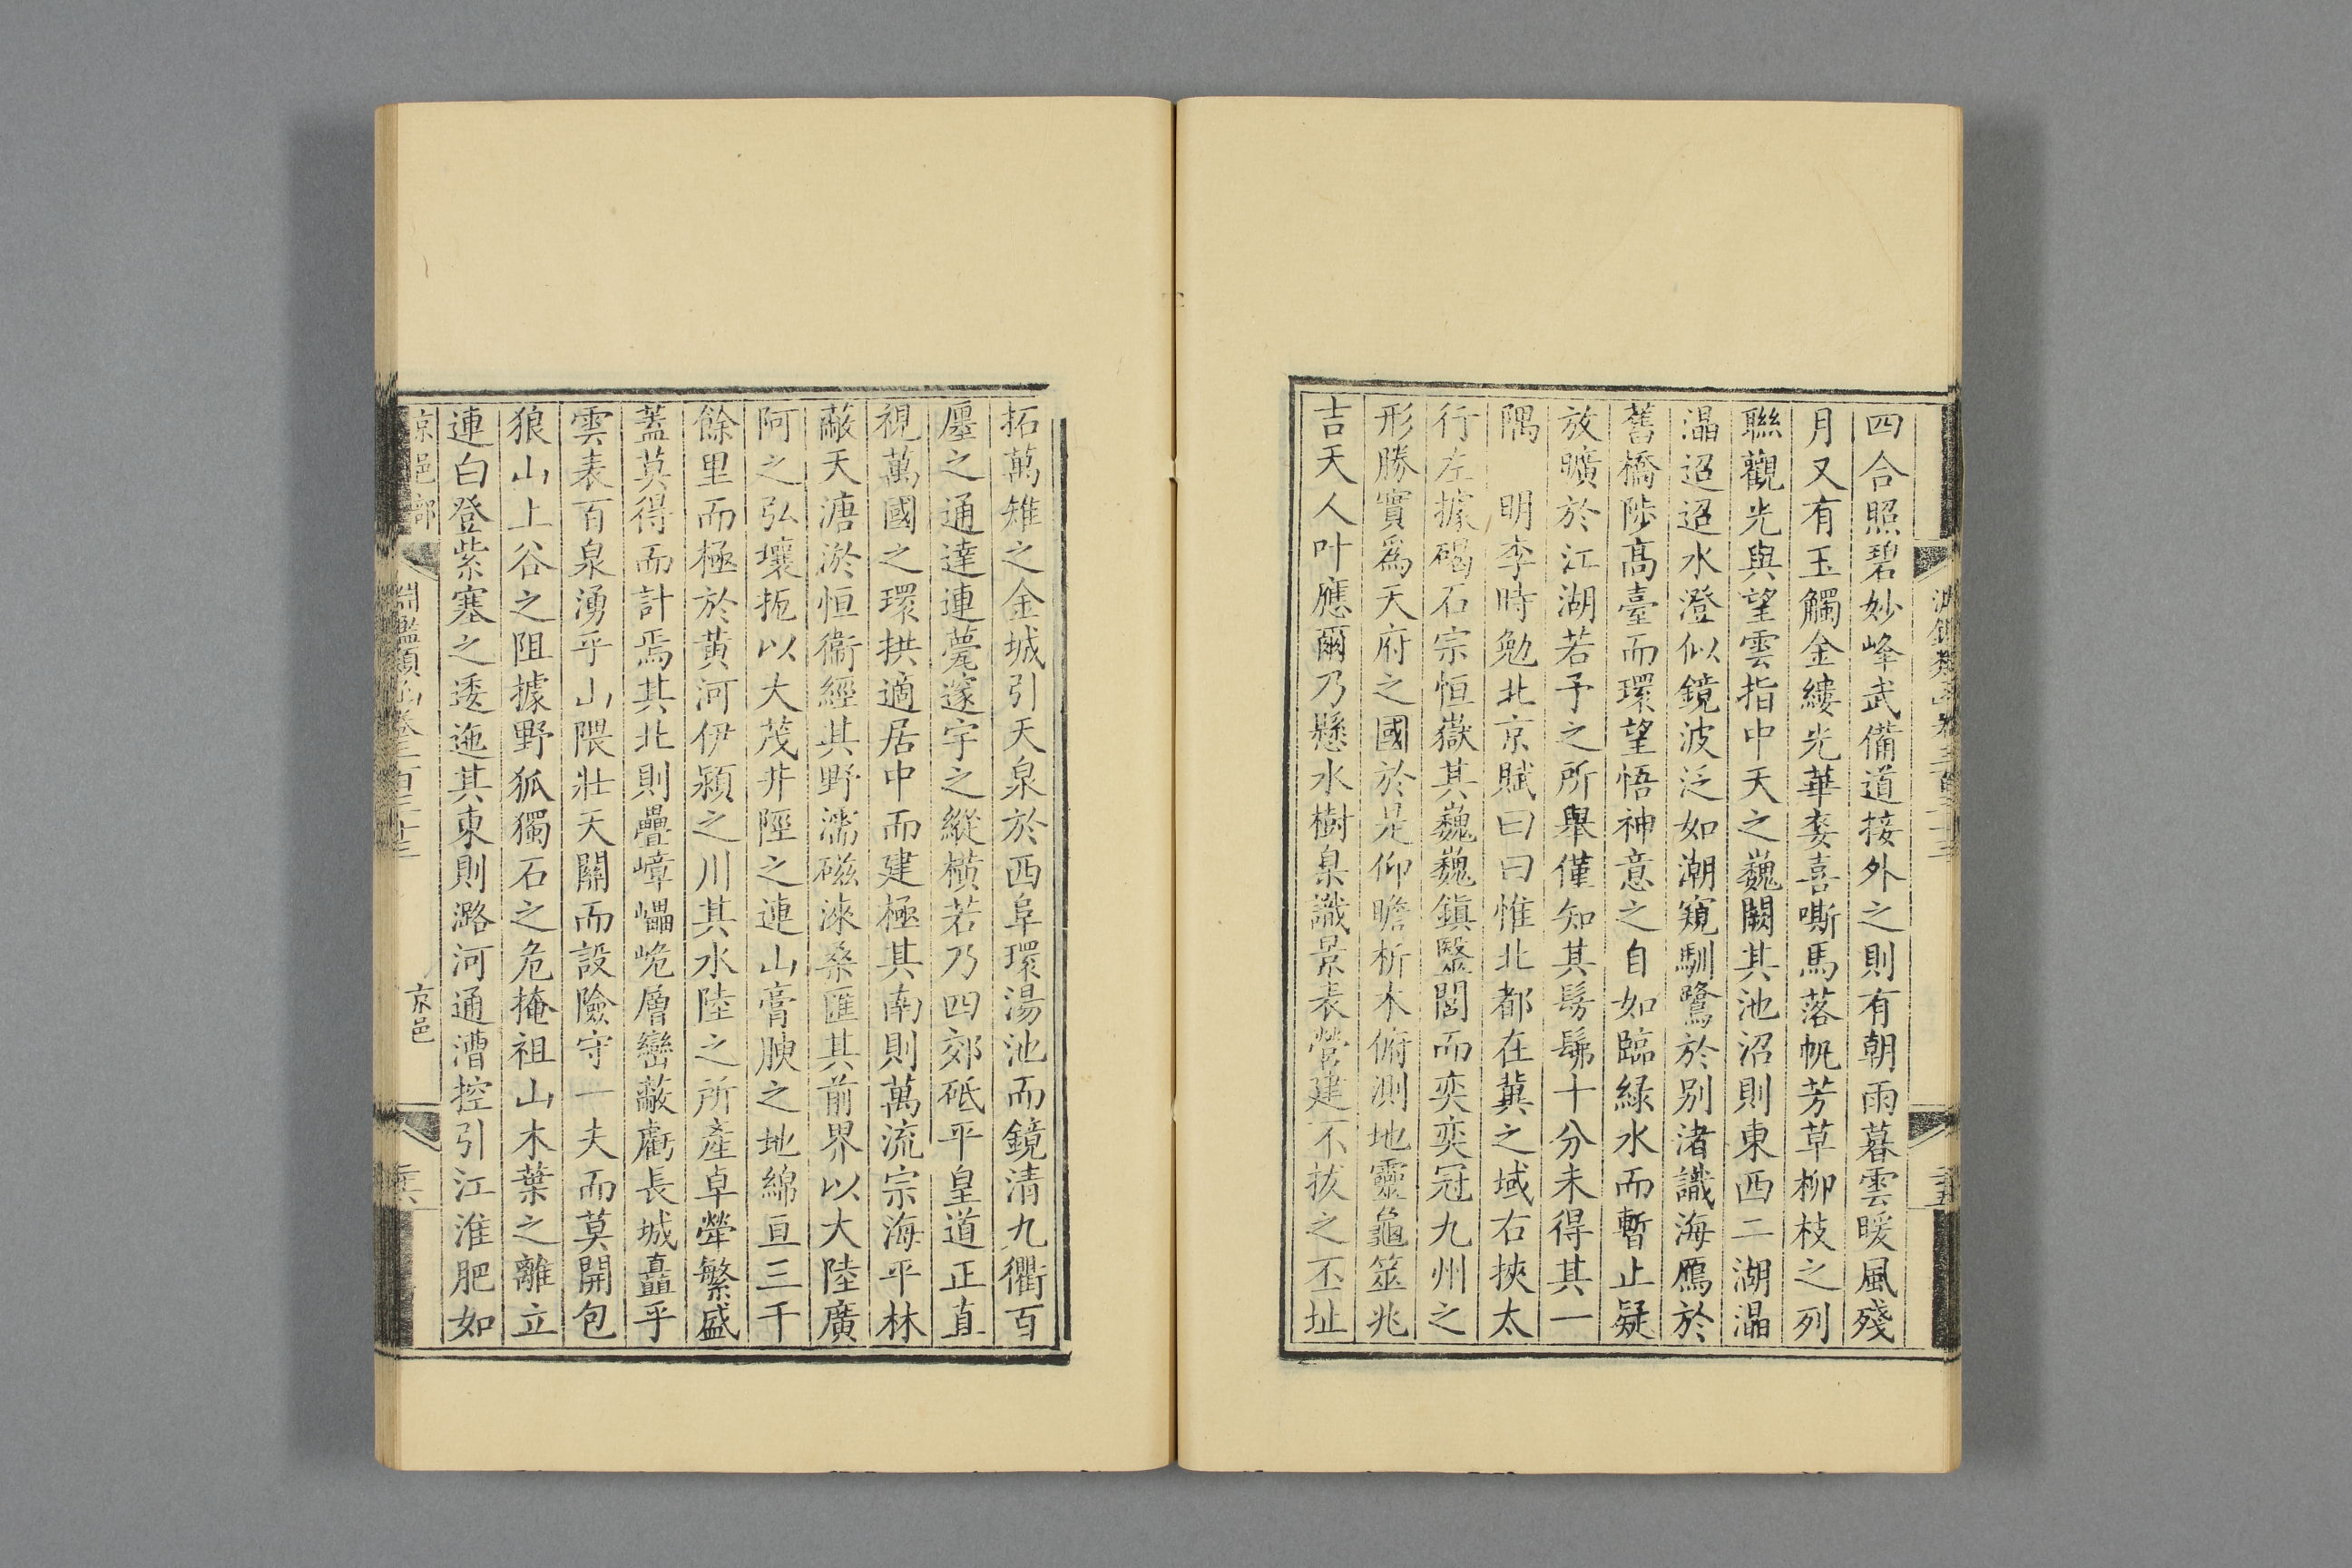 四合照碧妙峰武備道接外之則有朝雨暮雲暖風殘
月又有玉觸金縷光華奕喜嘶馬落帆芳草柳枝之列
聯觀光與望雲指中天之巍闕其池沼則東西二湖溫
溫迢迢水澄似鏡波泛如潮窺馴鷺於別渚識海鴈於
舊橋陟高臺而環望悟神意之自如臨綠水而暫止疑
放曠於江湖若予之所舉僅知其髣髴十分未得其一
隅　明李時勉北京賦曰曰惟北都在冀之域右挾太
行左據碣石宗恒嶽其巍巍鎮毉閭而奕奕冠九州之
形勝實爲天府之國於是仰瞻析木俯測地靈龜筮兆
吉天人叶應爾乃懸水樹臬識景表營建不拔之丕址
拓萬雉之金城引天泉於西阜環湯池而鏡清九衢百
廛之通達連甍邃宇之縱橫若乃四郊砥平皇道正直
視萬國之環拱適居中而建極其南則萬流宗海平林
蔽天溏淤恒衞經其野濡磁淶桑匯其前界以大陸廣
阿之弘壤扼以大茂井陘之連山膏腴之地綿亘三千
餘里而極於黃河伊潁之川其水陸之所產卓犖繁盛
蓋莫得而計焉其北則疊嶂巑岏層巒蔽虧長城矗乎
雲表百泉湧乎山隈壯天關而設險守一夫而莫開包
狼山上谷之阻據野狐獨石之危掩祖山木葉之離立
連白登紫塞之逶迤其東則潞河通漕控引江淮肥如
京邑部　淵鑑類函卷三百三十三　京邑